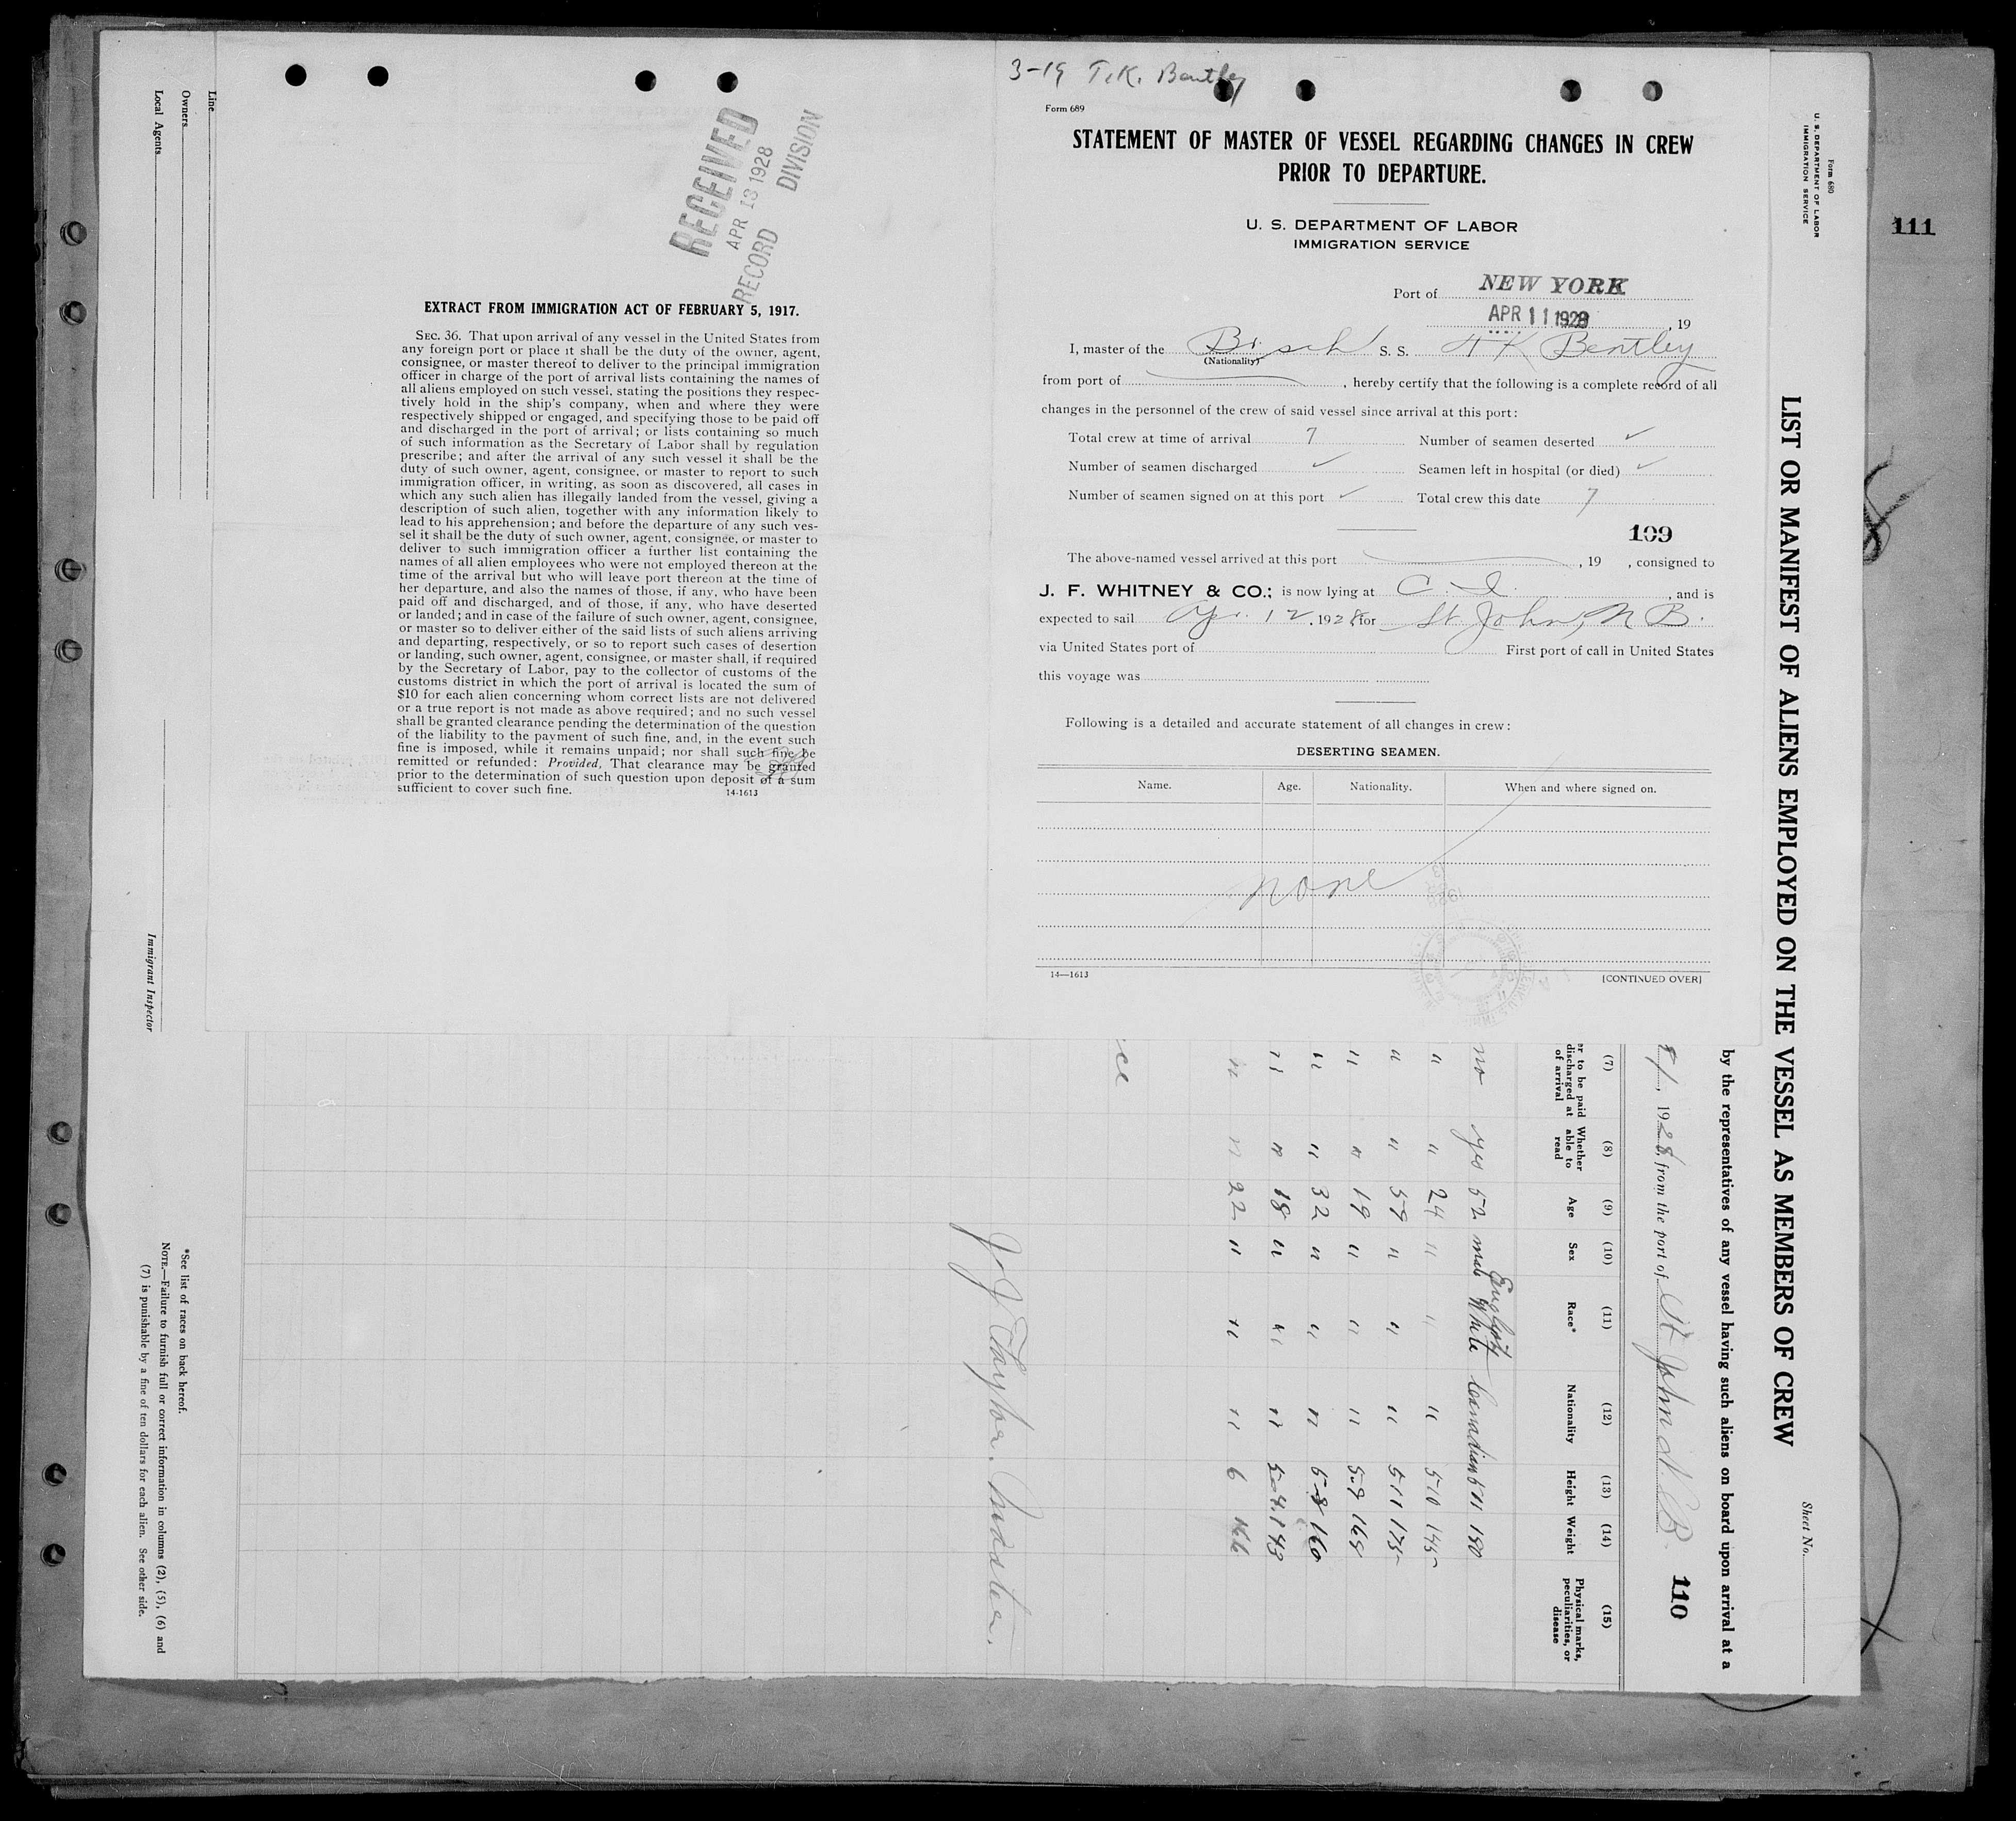 3-19 T.K. Bentley
Form 689
STATEMENT OF MASTER OF VESSEL REGARDING CHANGES IN CREW
PRIOR TO DEPARTURE.
U. S. DEPARTMENT OF LABOR
IMMIGRATION SERVICE
Port of NEW YORK
APR 11 1928, 19
I, master of the Br. sch S. S. T K Bentley
(Nationality)
from port of, hereby certify that the following is a complete record of all
changes in the personnel of the crew of said vessel since arrival at this port:
Total crew at time of arrival 7 Number of seamen deserted ✓
Number of seamen discharged ✓ Seamen left in hospital (or died) ✓
Number of seamen signed on at this port ✓ Total crew this date 7
109
The above-named vessel arrived at this port, 19 , consigned to
J. F. WHITNEY & CO.; is now lying at C. I., and is
expected to sail Apr. 12, 1928 for St. John, N B.
via United States port of First port of call in United States
this voyage was
Following is a detailed and accurate statement of all changes in crew:
DESERTING SEAMEN.
Name. Age. Nationality. When and where signed on.
none
14—1613 [CONTINUED OVER]
RECEIVED
APR 13 1928
RECORD DIVISION
EXTRACT FROM IMMIGRATION ACT OF FEBRUARY 5, 1917.
SEC. 36. That upon arrival of any vessel in the United States from
any foreign port or place it shall be the duty of the owner, agent,
consignee, or master thereof to deliver to the principal immigration
officer in charge of the port of arrival lists containing the names of
all aliens employed on such vessel, stating the positions they respec-
tively hold in the ship's company, when and where they were
respectively shipped or engaged, and specifying those to be paid off
and discharged in the port of arrival; or lists containing so much
of such information as the Secretary of Labor shall by regulation
prescribe; and after the arrival of any such vessel it shall be the
duty of such owner, agent, consignee, or master to report to such
immigration officer, in writing, as soon as discovered, all cases in
which any such alien has illegally landed from the vessel, giving a
description of such alien, together with any information likely to
lead to his apprehension; and before the departure of any such ves-
sel it shall be the duty of such owner, agent, consignee, or master to
deliver to such immigration officer a further list containing the
names of all alien employees who were not employed thereon at the
time of the arrival but who will leave port thereon at the time of
her departure, and also the names of those, if any, who have been
paid off and discharged, and of those, if any, who have deserted
or landed; and in case of the failure of such owner, agent, consignee,
or master so to deliver either of the said lists of such aliens arriving
and departing, respectively, or so to report such cases of desertion
or landing, such owner, agent, consignee, or master shall, if required
by the Secretary of Labor, pay to the collector of customs of the
customs district in which the port of arrival is located the sum of
$10 for each alien concerning whom correct lists are not delivered
or a true report is not made as above required; and no such vessel
shall be granted clearance pending the determination of the question
of the liability to the payment of such fine, and, in the event such
fine is imposed, while it remains unpaid; nor shall such fine be
remitted or refunded: Provided, That clearance may be granted
prior to the determination of such question upon deposit of a sum
sufficient to cover such fine.
14-1613
111
Form 689
U. S. DEPARTMENT OF LABOR
IMMIGRATION SERVICE
Sheet No.
LIST OR MANIFEST OF ALIENS EMPLOYED ON THE VESSEL AS MEMBERS OF CREW
by the representatives of any vessel having such aliens on board upon arrival at a
, 1928, from the port of St John N. B.
110
(7) (8) (9) (10) (11) (12) (13) (14) (15)
er to be paid discharged at of arrival
Whether able to read
Age
Sex
Race*
Nationality
Height
Weight
Physical marks, peculiarities, or disease
English
no yes 52 male White Canadian 5 11 180
" " 24 " " " 5-10 145
" " 59 " " " 5-11 175
" " 19 " " " 5-9 165
" " 32 " " " 5-8 160
" " 18 " " " 5-4 143
" " 22 " " " 6
Master.
Line
Owners
Local Agents
Immigrant Inspector
*See list of races on back hereof.
NOTE.—Failure to furnish full or correct information in columns (2), (5), (6) and
(7) is punishable by a fine of ten dollars for each alien. See other side.